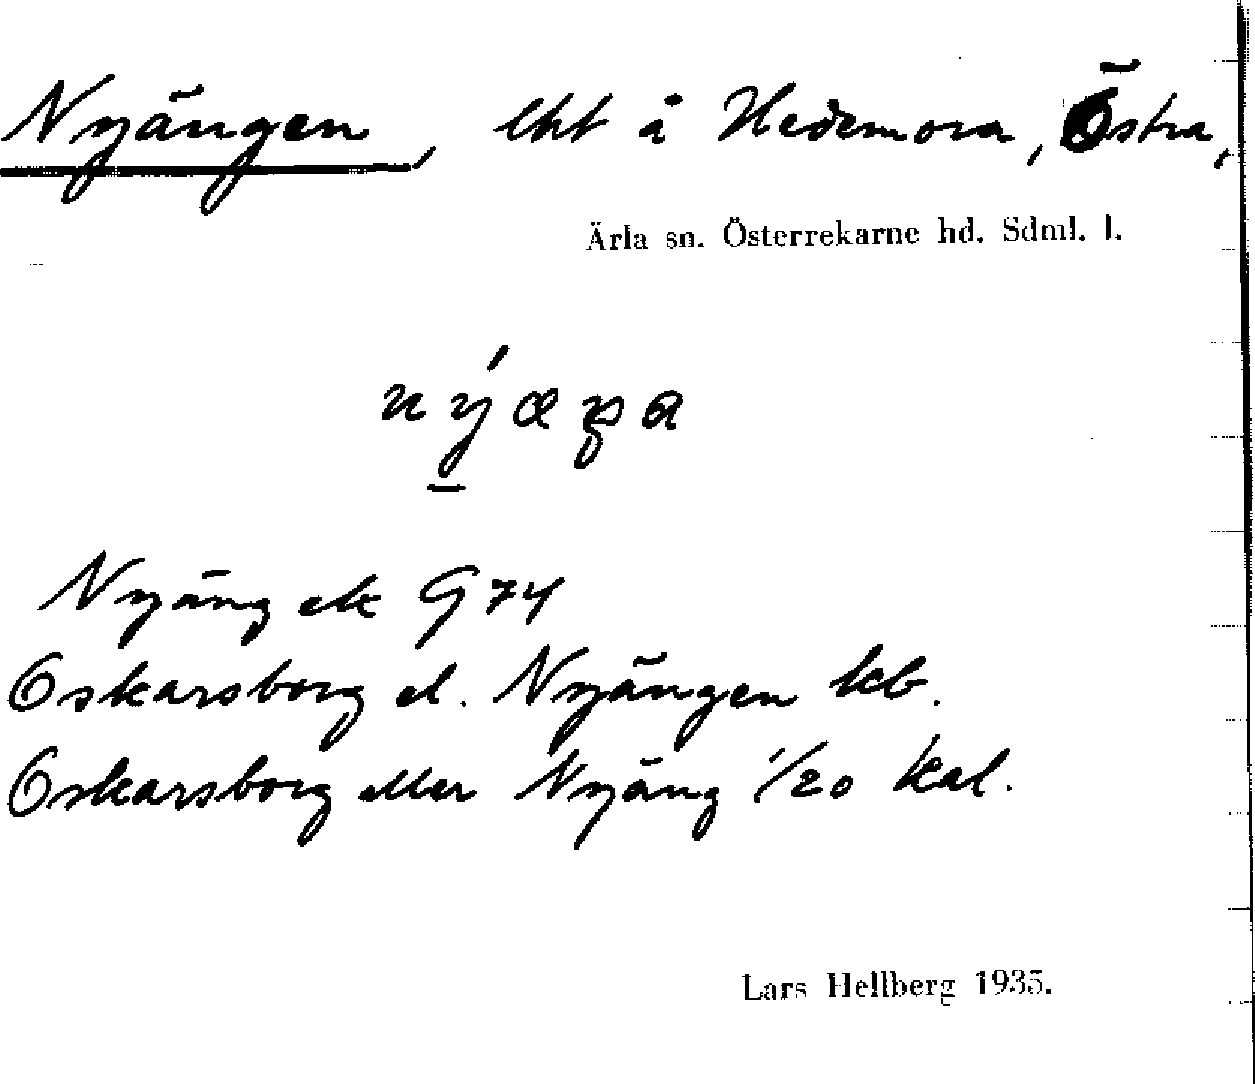 Nyängen, lht å Hedemora, Östra,
Ärla sn. Österrekarne hd. Sdml. l.
Nyäng ek G 74
Oskarsborg el. Nyängen kb.
Oskarsborg eller Nyäng 1/20 kal.
Lars Hellberg 1935.